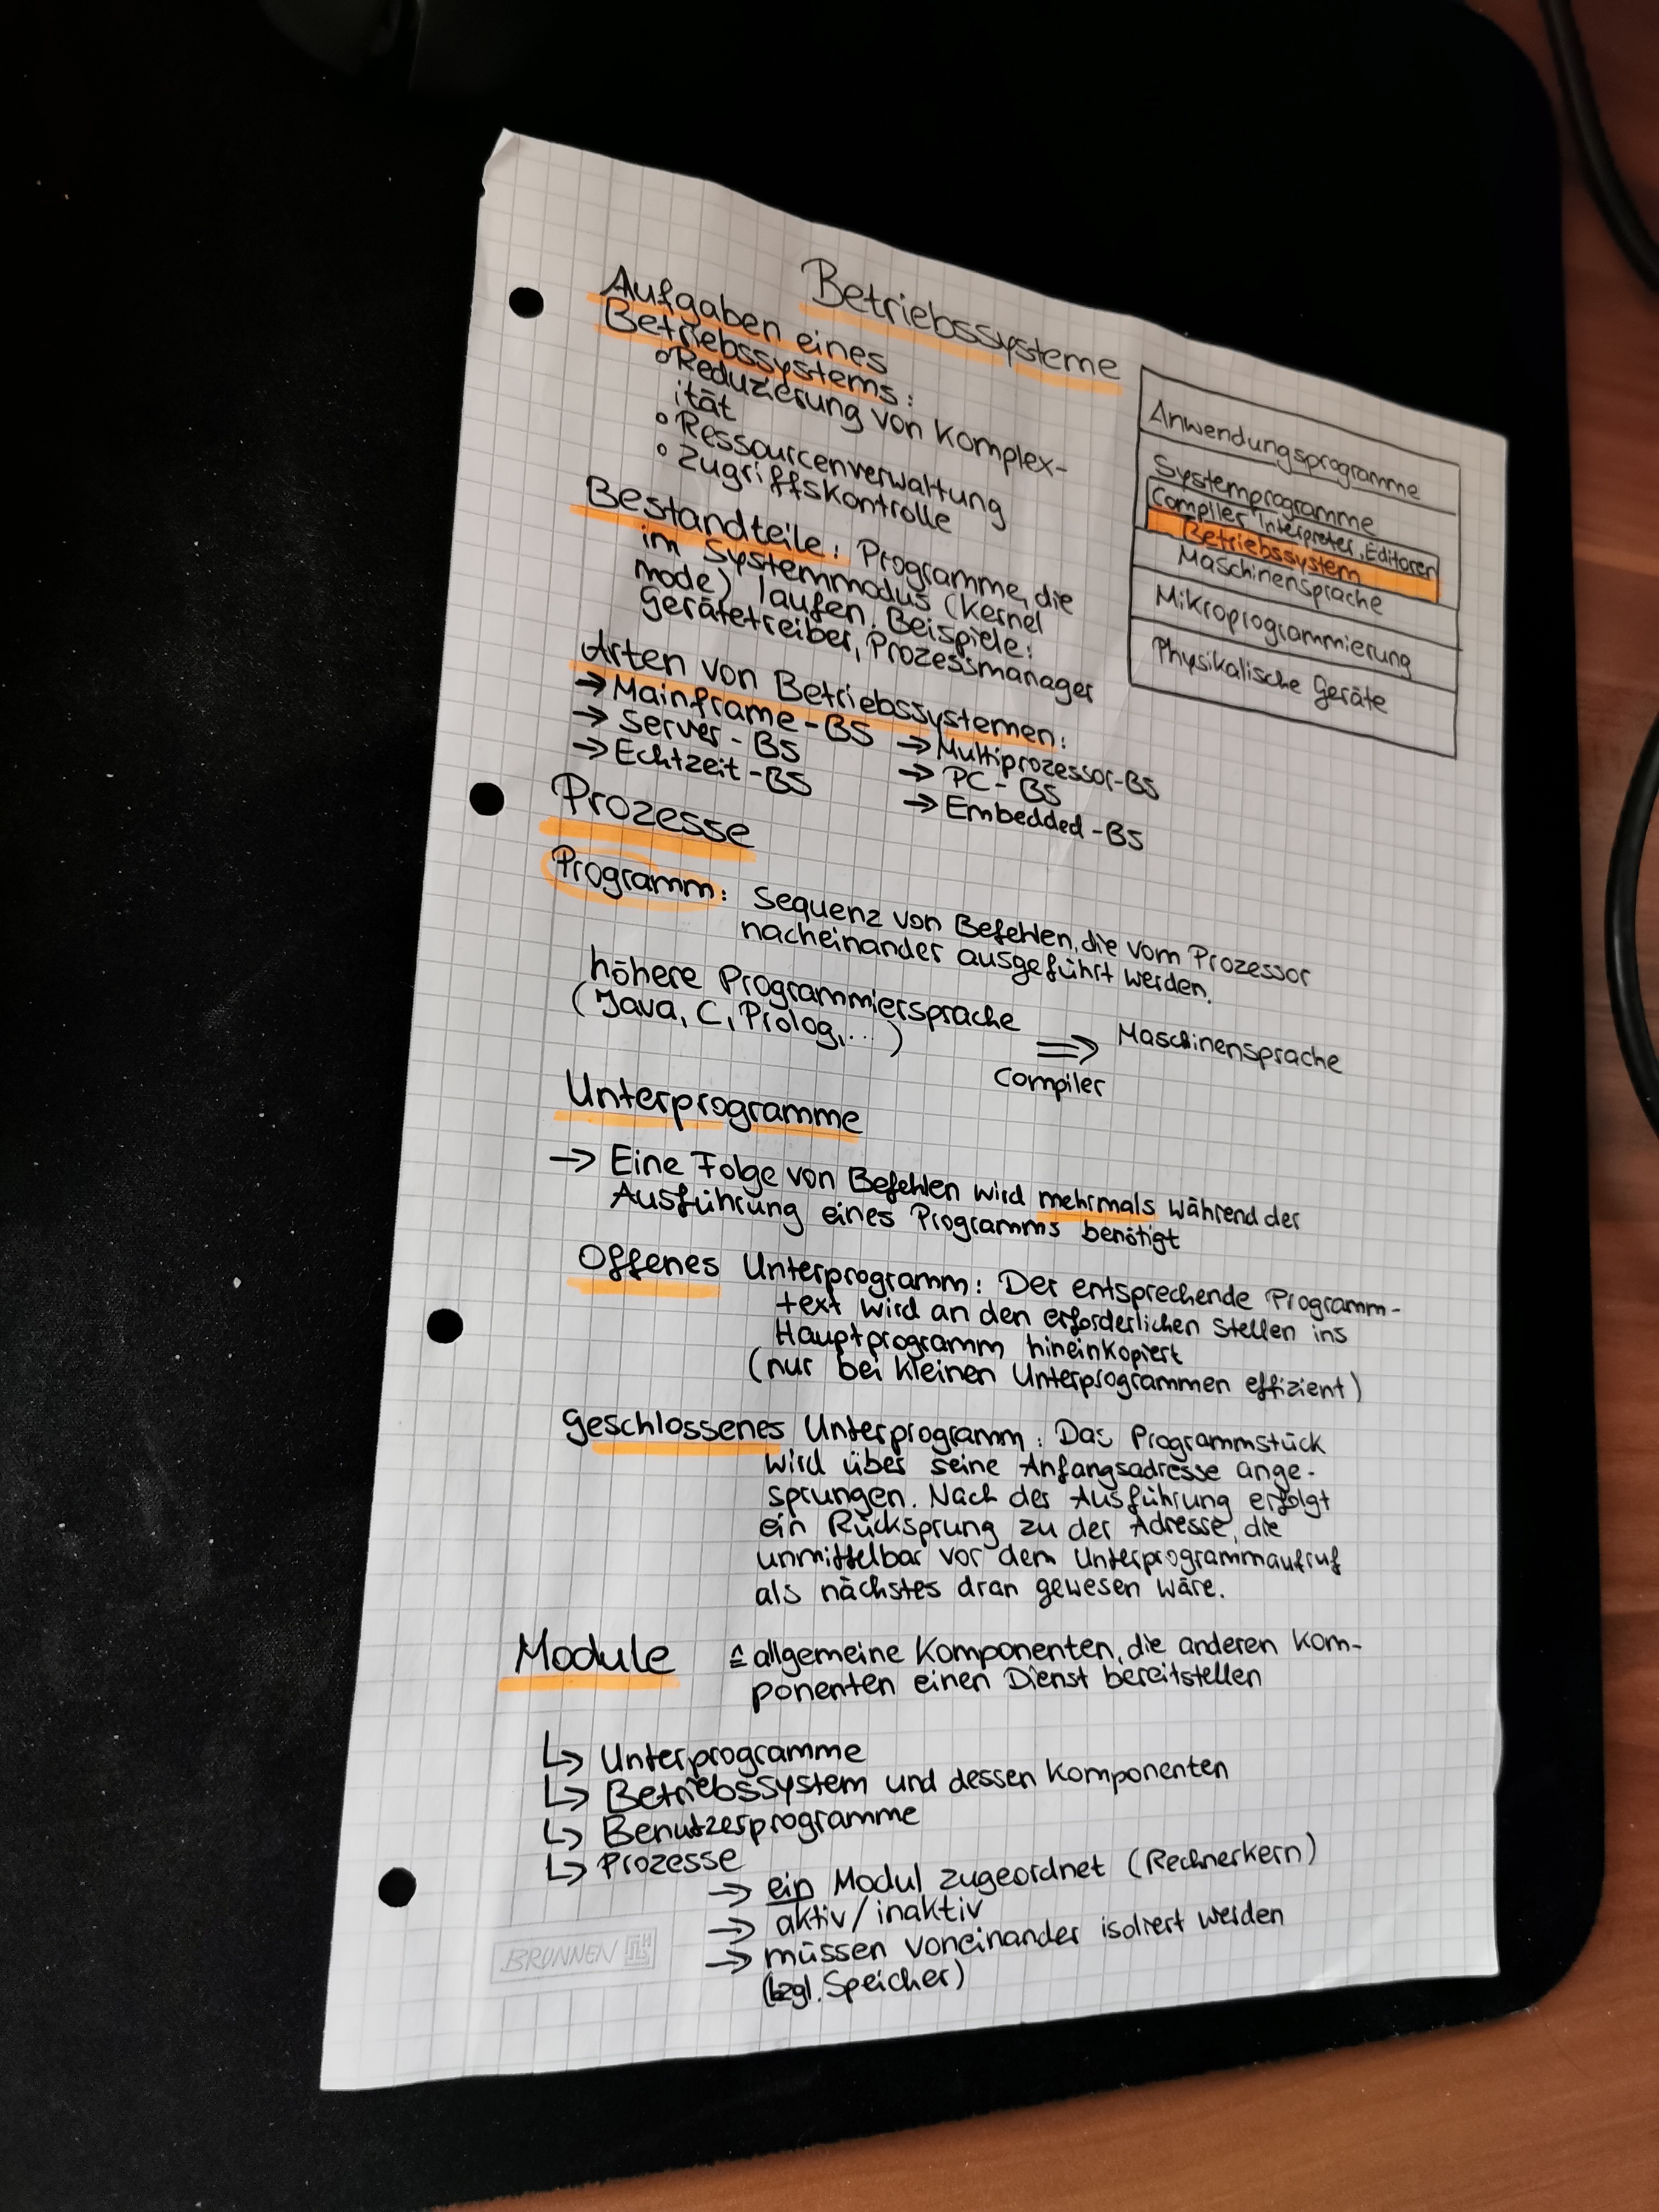 Betriebssysteme
Aufgaben eines
Betriebssystems:
° Reduzierung von Komplex-
ität
° Ressourcenverwaltung
° Zugriffskontrolle
Bestandteile: Programme, die
im Systemmodus (Kernel
mode) laufen. Beispiele:
Gerätetreiber, Prozessmanager
Anwendungsprogramme
Systemprogramme
Compiler, Interpreter, Editoren
Betriebssystem
Maschinensprache
Mikroprogrammierung
Physikalische Geräte
Arten von Betriebssystemen:
→ Mainframe-BS
→ Server-BS
→ Echtzeit-BS
→ Multiprozessor-BS
→ PC-BS
→ Embedded-BS
Prozesse
Programm: Sequenz von Befehlen, die vom Prozessor
nacheinander ausgeführt werden.
höhere Programmiersprache
(Java, C, Prolog, ...)
⇒ Maschinensprache
Compiler
Unterprogramme
→ Eine Folge von Befehlen wird mehrmals während der
Ausführung eines Programms benötigt
Offenes Unterprogramm: Der entsprechende Programm-
text wird an den erforderlichen Stellen ins
Hauptprogramm hineinkopiert
(nur bei kleinen Unterprogrammen effizient)
Geschlossenes Unterprogramm: Das Programmstück
wird über seine Anfangsadresse ange-
sprungen. Nach der Ausführung erfolgt
ein Rücksprung zu der Adresse, die
unmittelbar vor dem Unterprogrammaufruf
als nächstes dran gewesen wäre.
Module ≙ allgemeine Komponenten, die anderen Kom-
ponenten einen Dienst bereitstellen
↳ Unterprogramme
↳ Betriebssystem und dessen Komponenten
↳ Benutzerprogramme
↳ Prozesse
→ ein Modul zugeordnet (Rechnerkern)
→ aktiv/inaktiv
→ müssen voneinander isoliert werden
(bzgl. Speicher)
BRUNNEN